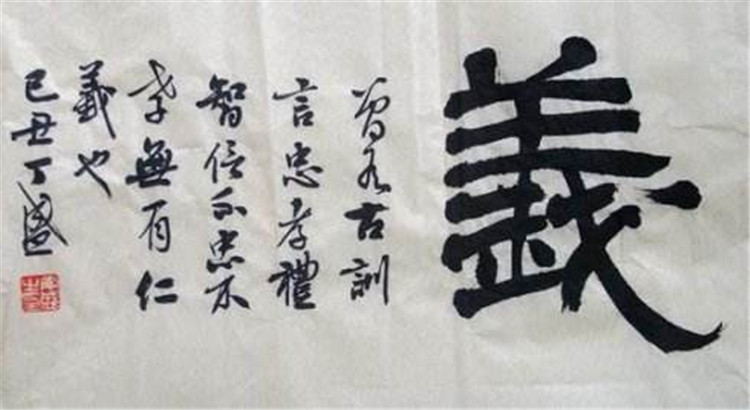 義
曾有古訓
言忠孝禮
智信不忠不
孝無有仁
義也
己丑丁盛